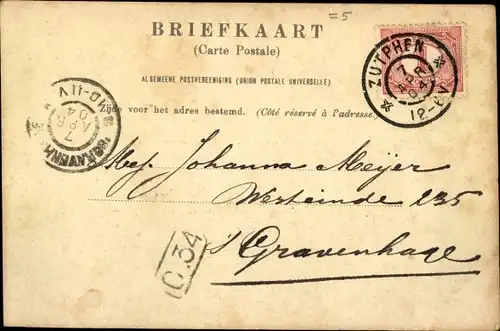 =5
BRIEFKAART
(Carte Postale)
ALGEMEENE POSTVEREENIGING (UNION POSTALE UNIVERSELLE)
Zijde voor het adres bestemd. (Côté réservé à l'adresse.)
ZUTPHEN
7 APR 04
'SGRAVENHAGE
7 APR 04
Mej. Johanna Meijer
Westeinde 235
's Gravenhage
C.34